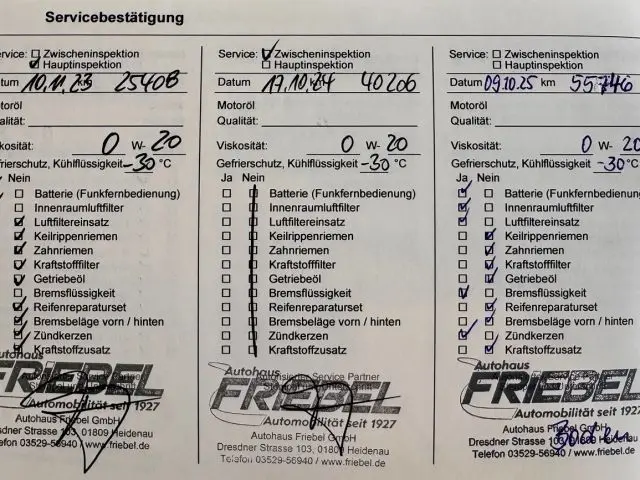 Servicebestätigung
ervice: Zwischeninspektion
Hauptinspektion
tum 10.11.23 25408
otoröl
ualität:
skosität: 0 W- 20
efrierschutz, Kühlflüssigkeit -30 °C
Nein
Batterie (Funkfernbedienung)
Innenraumluftfilter
Luftfiltereinsatz
Keilrippenriemen
Zahnriemen
Kraftstofffilter
Getriebeöl
Bremsflüssigkeit
Reifenreparaturset
Bremsbeläge vorn / hinten
Zündkerzen
Kraftstoffzusatz
Autohaus
FRIEBEL
Automobilität seit 1927
Autohaus Friebel GmbH
esdner Strasse 103, 01809 Heidenau
elefon 03529-56940 / www.friebel.de
Service: Zwischeninspektion
Hauptinspektion
Datum 17.10.24 40206
Motoröl
Qualität:
Viskosität: 0 W- 20
Gefrierschutz, Kühlflüssigkeit -30 °C
Ja Nein
Batterie (Funkfernbedienung)
Innenraumluftfilter
Luftfiltereinsatz
Keilrippenriemen
Zahnriemen
Kraftstofffilter
Getriebeöl
Bremsflüssigkeit
Reifenreparaturset
Bremsbeläge vorn / hinten
Zündkerzen
Kraftstoffzusatz
Autohaus
Autorisierter Service Partner
FRIEBEL
Automobilität seit 1927
Autohaus Friebel GmbH
Dresdner Strasse 103, 01809 Heidenau
Telefon 03529-56940 / www.friebel.de
Service: Zwischeninspektion
Hauptinspektion
Datum 09.10.25 km 55746
Motoröl
Qualität:
Viskosität: 0 W- 20
Gefrierschutz, Kühlflüssigkeit -30 °C
Ja Nein
Batterie (Funkfernbedienung)
Innenraumluftfilter
Luftfiltereinsatz
Keilrippenriemen
Zahnriemen
Kraftstofffilter
Getriebeöl
Bremsflüssigkeit
Reifenreparaturset
Bremsbeläge vorn / hinten
Zündkerzen
Kraftstoffzusatz
Autohaus
FRIEBEL
Automobilität seit 1927
Autohaus Friebel GmbH
Dresdner Strasse 103, 01809 Heidenau
Telefon 03529-56940 / www.friebel.de